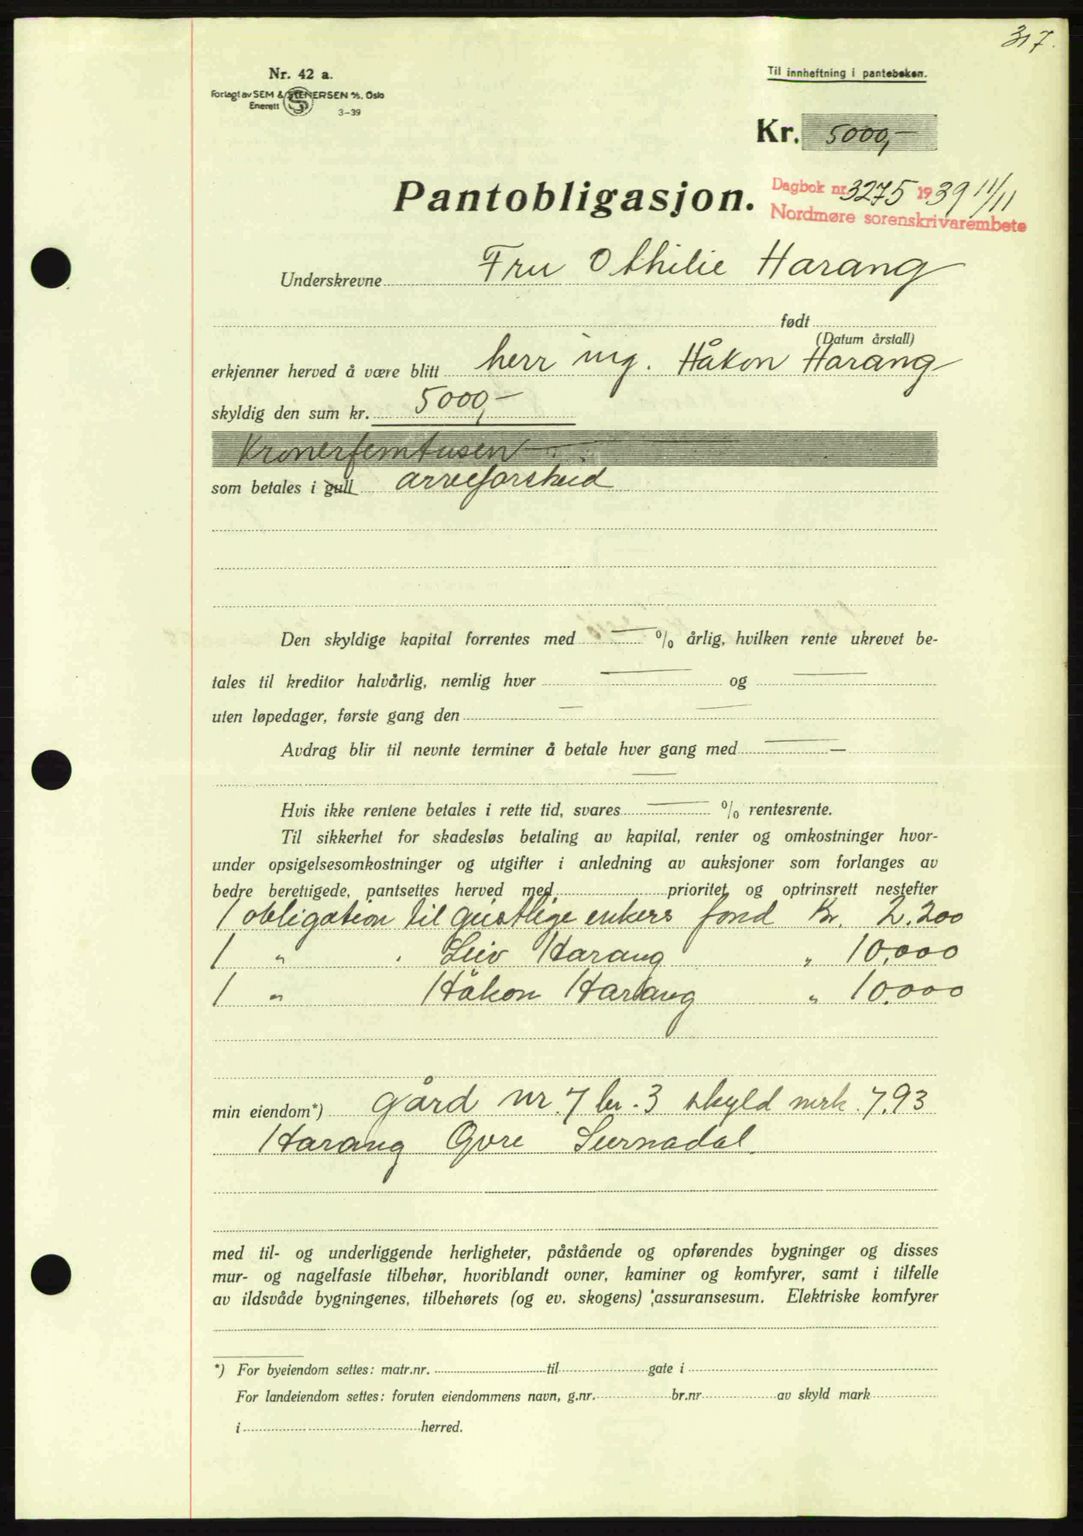 317.
Nr. 42 a.
Forlagt av SEM & STENERSEN A/S, Oslo
Enerett
3-39
Til innheftning i panteboken.
Kr. 5000,-
Pantobligasjon.
Dagbok nr. 3275 1939 11/11
Nordmøre sorenskriverembete
Underskrevne Fru Othilie Harang
født
(Datum årstall)
erkjenner herved å være blitt herr ing. Håkon Harang
skyldig den sum kr. 5000,-
Kronerfemtusen
som betales i gull arveforskud
Den skyldige kapital forrentes med — % årlig, hvilken rente ukrevet be-
tales til kreditor halvårlig, nemlig hver — og —
uten løpedager, første gang den — —
Avdrag blir til nevnte terminer å betale hver gang med —
—
Hvis ikke rentene betales i rette tid, svares — % rentesrente.
Til sikkerhet for skadesløs betaling av kapital, renter og omkostninger hvor-
under opsigelsesomkostninger og utgifter i anledning av auksjoner som forlanges av
bedre berettigede, pantsettes herved med prioritet og optrinsrett nestefter
1 obligation til geistlige enkers fond Kr. 2.200
1 " " Leiv Harang " 10.000
1 " Håkon Harang " 10.000
min eiendom*) gård nr. 7 br. 3 skyld mrk. 7.93
Harang Øvre Surnadal.
med til- og underliggende herligheter, påstående og opførendes bygninger og disses
mur- og nagelfaste tilbehør, hvoriblandt ovner, kaminer og komfyrer, samt i tilfelle
av ildsvåde bygningenes, tilbehørets (og ev. skogens) assuransesum. Elektriske komfyrer
*) For byeiendom settes: matr.nr. til gate i
For landeiendom settes: foruten eiendommens navn, g.nr. br.nr av skyld mark
i herred.